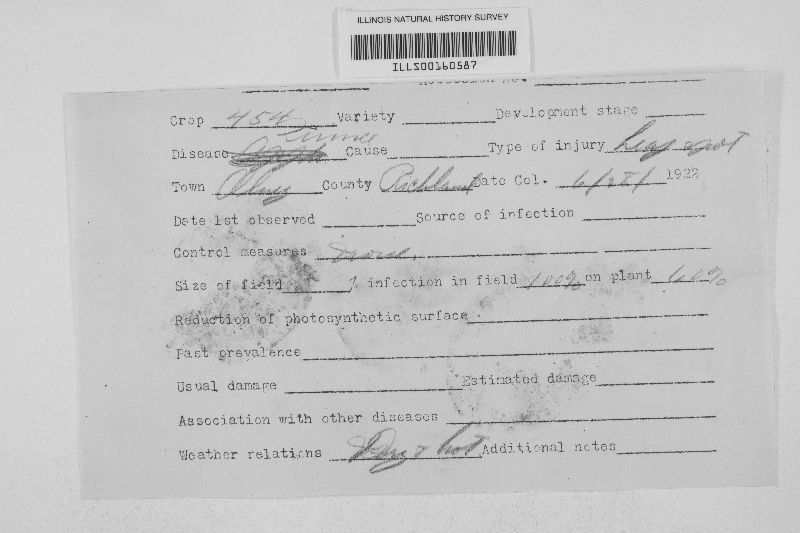 ILLINOIS NATURAL HISTORY SURVEY
ILLS00160587
Crop 454 Variety Development stage
Disease Cause Type of injury Leaf spot
Town Olney County Richland Date Col. 1922
Date 1st observed Source of infection
Control measures None.
Size of field % infection in field 100% on plant 60%
Reduction of photosynthetic surface
Past prevalence
Usual damage Estimated damage
Association with other diseases
Weather relations Dry & hot Additional notes